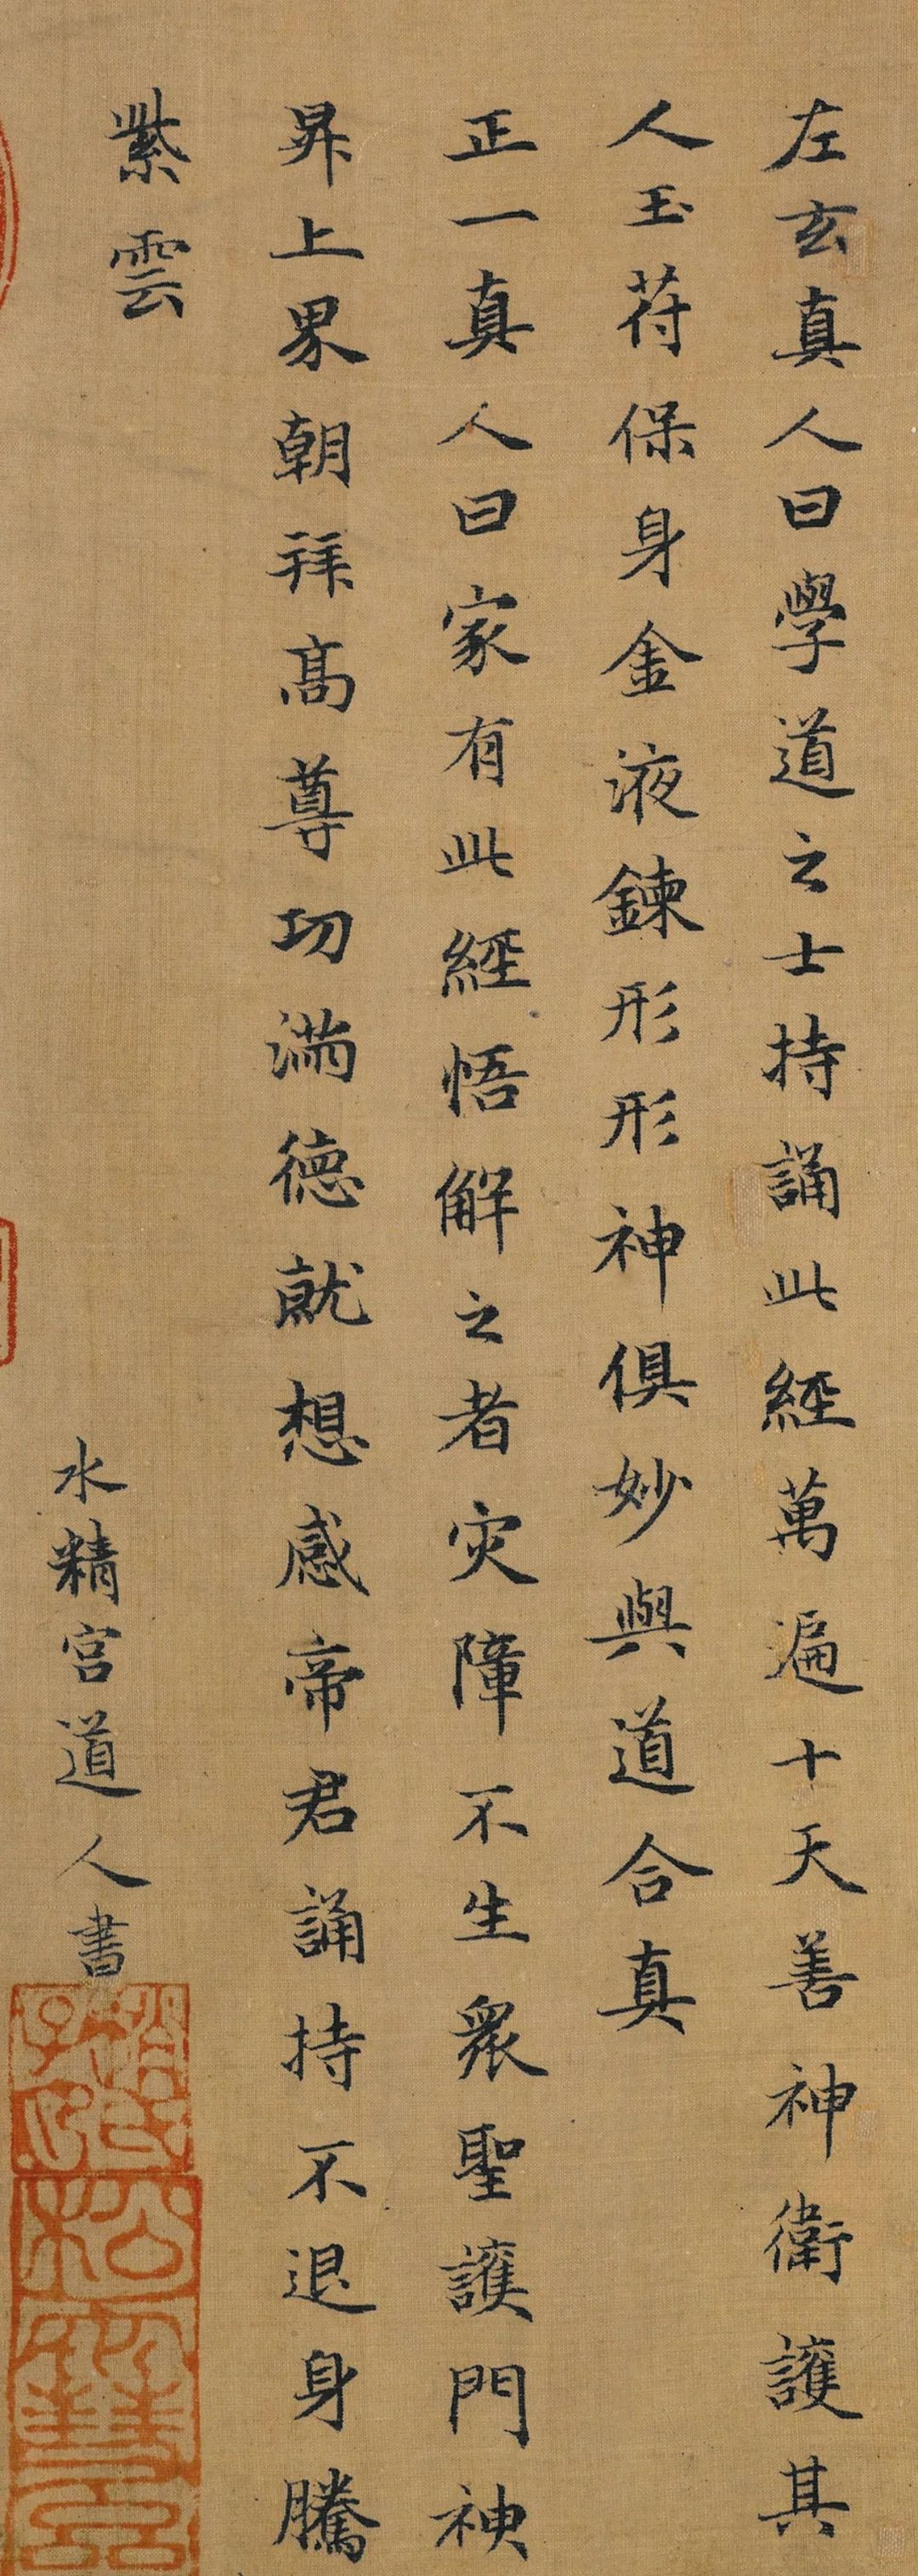 左玄真人曰學道之士持誦此經萬遍十天善神衛護其
人玉符保身金液鍊形形神俱妙與道合真
正一真人曰家有此經悟解之者灾障不生衆聖護門神
昇上界朝拜高尊功滿德就想感帝君誦持不退身騰
紫雲
水精宮道人書
趙氏子昂
松雪齋